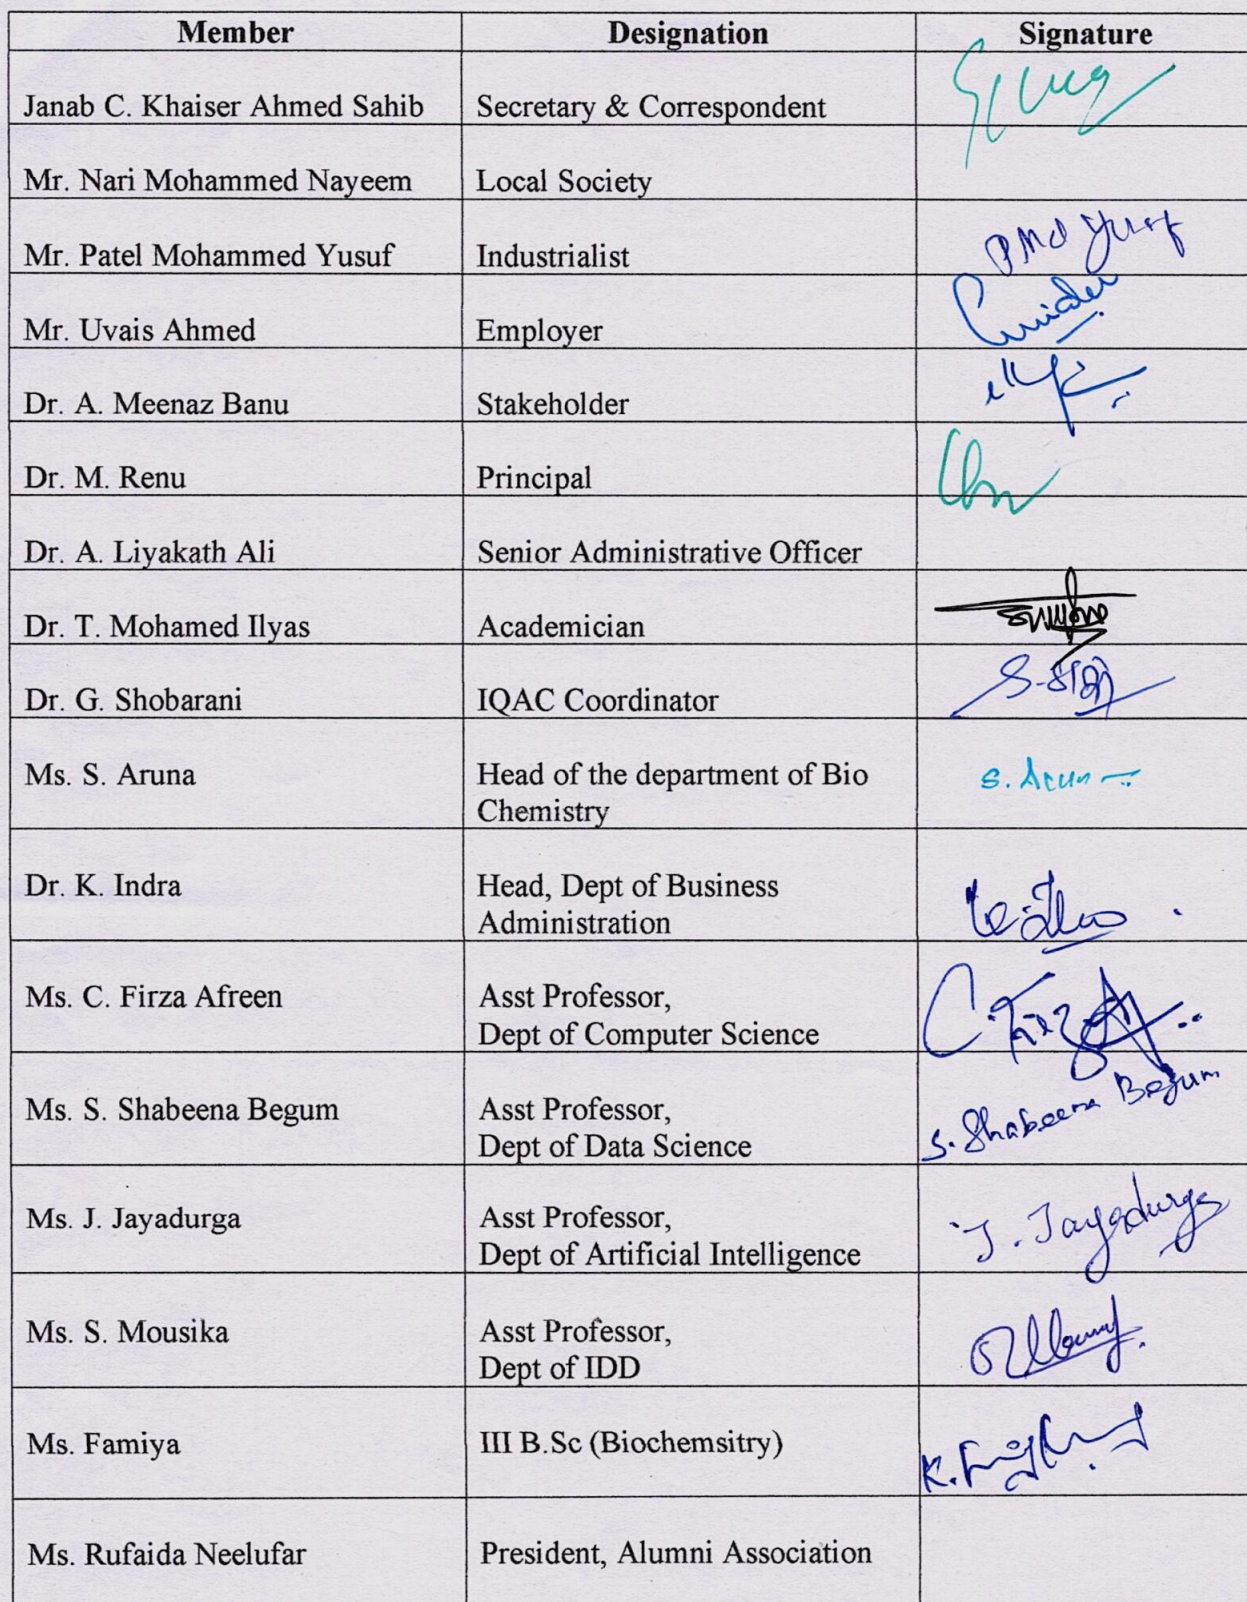 Member Designation Signature
Janab C. Khaiser Ahmed Sahib Secretary & Correspondent
Mr. Nari Mohammed Nayeem Local Society
Mr. Patel Mohammed Yusuf Industrialist P Md Yusuf
Mr. Uvais Ahmed Employer
Dr. A. Meenaz Banu Stakeholder
Dr. M. Renu Principal
Dr. A. Liyakath Ali Senior Administrative Officer
Dr. T. Mohamed Ilyas Academician
Dr. G. Shobarani IQAC Coordinator
Ms. S. Aruna Head of the department of Bio S. Aruna
Chemistry
Dr. K. Indra Head, Dept of Business
Administration
Ms. C. Firza Afreen Asst Professor,
Dept of Computer Science
Ms. S. Shabeena Begum Asst Professor, S. Shabeena Begum
Dept of Data Science
Ms. J. Jayadurga Asst Professor, J. Jayadurga
Dept of Artificial Intelligence
Ms. S. Mousika Asst Professor,
Dept of IDD
Ms. Famiya III B.Sc (Biochemsitry)
Ms. Rufaida Neelufar President, Alumni Association